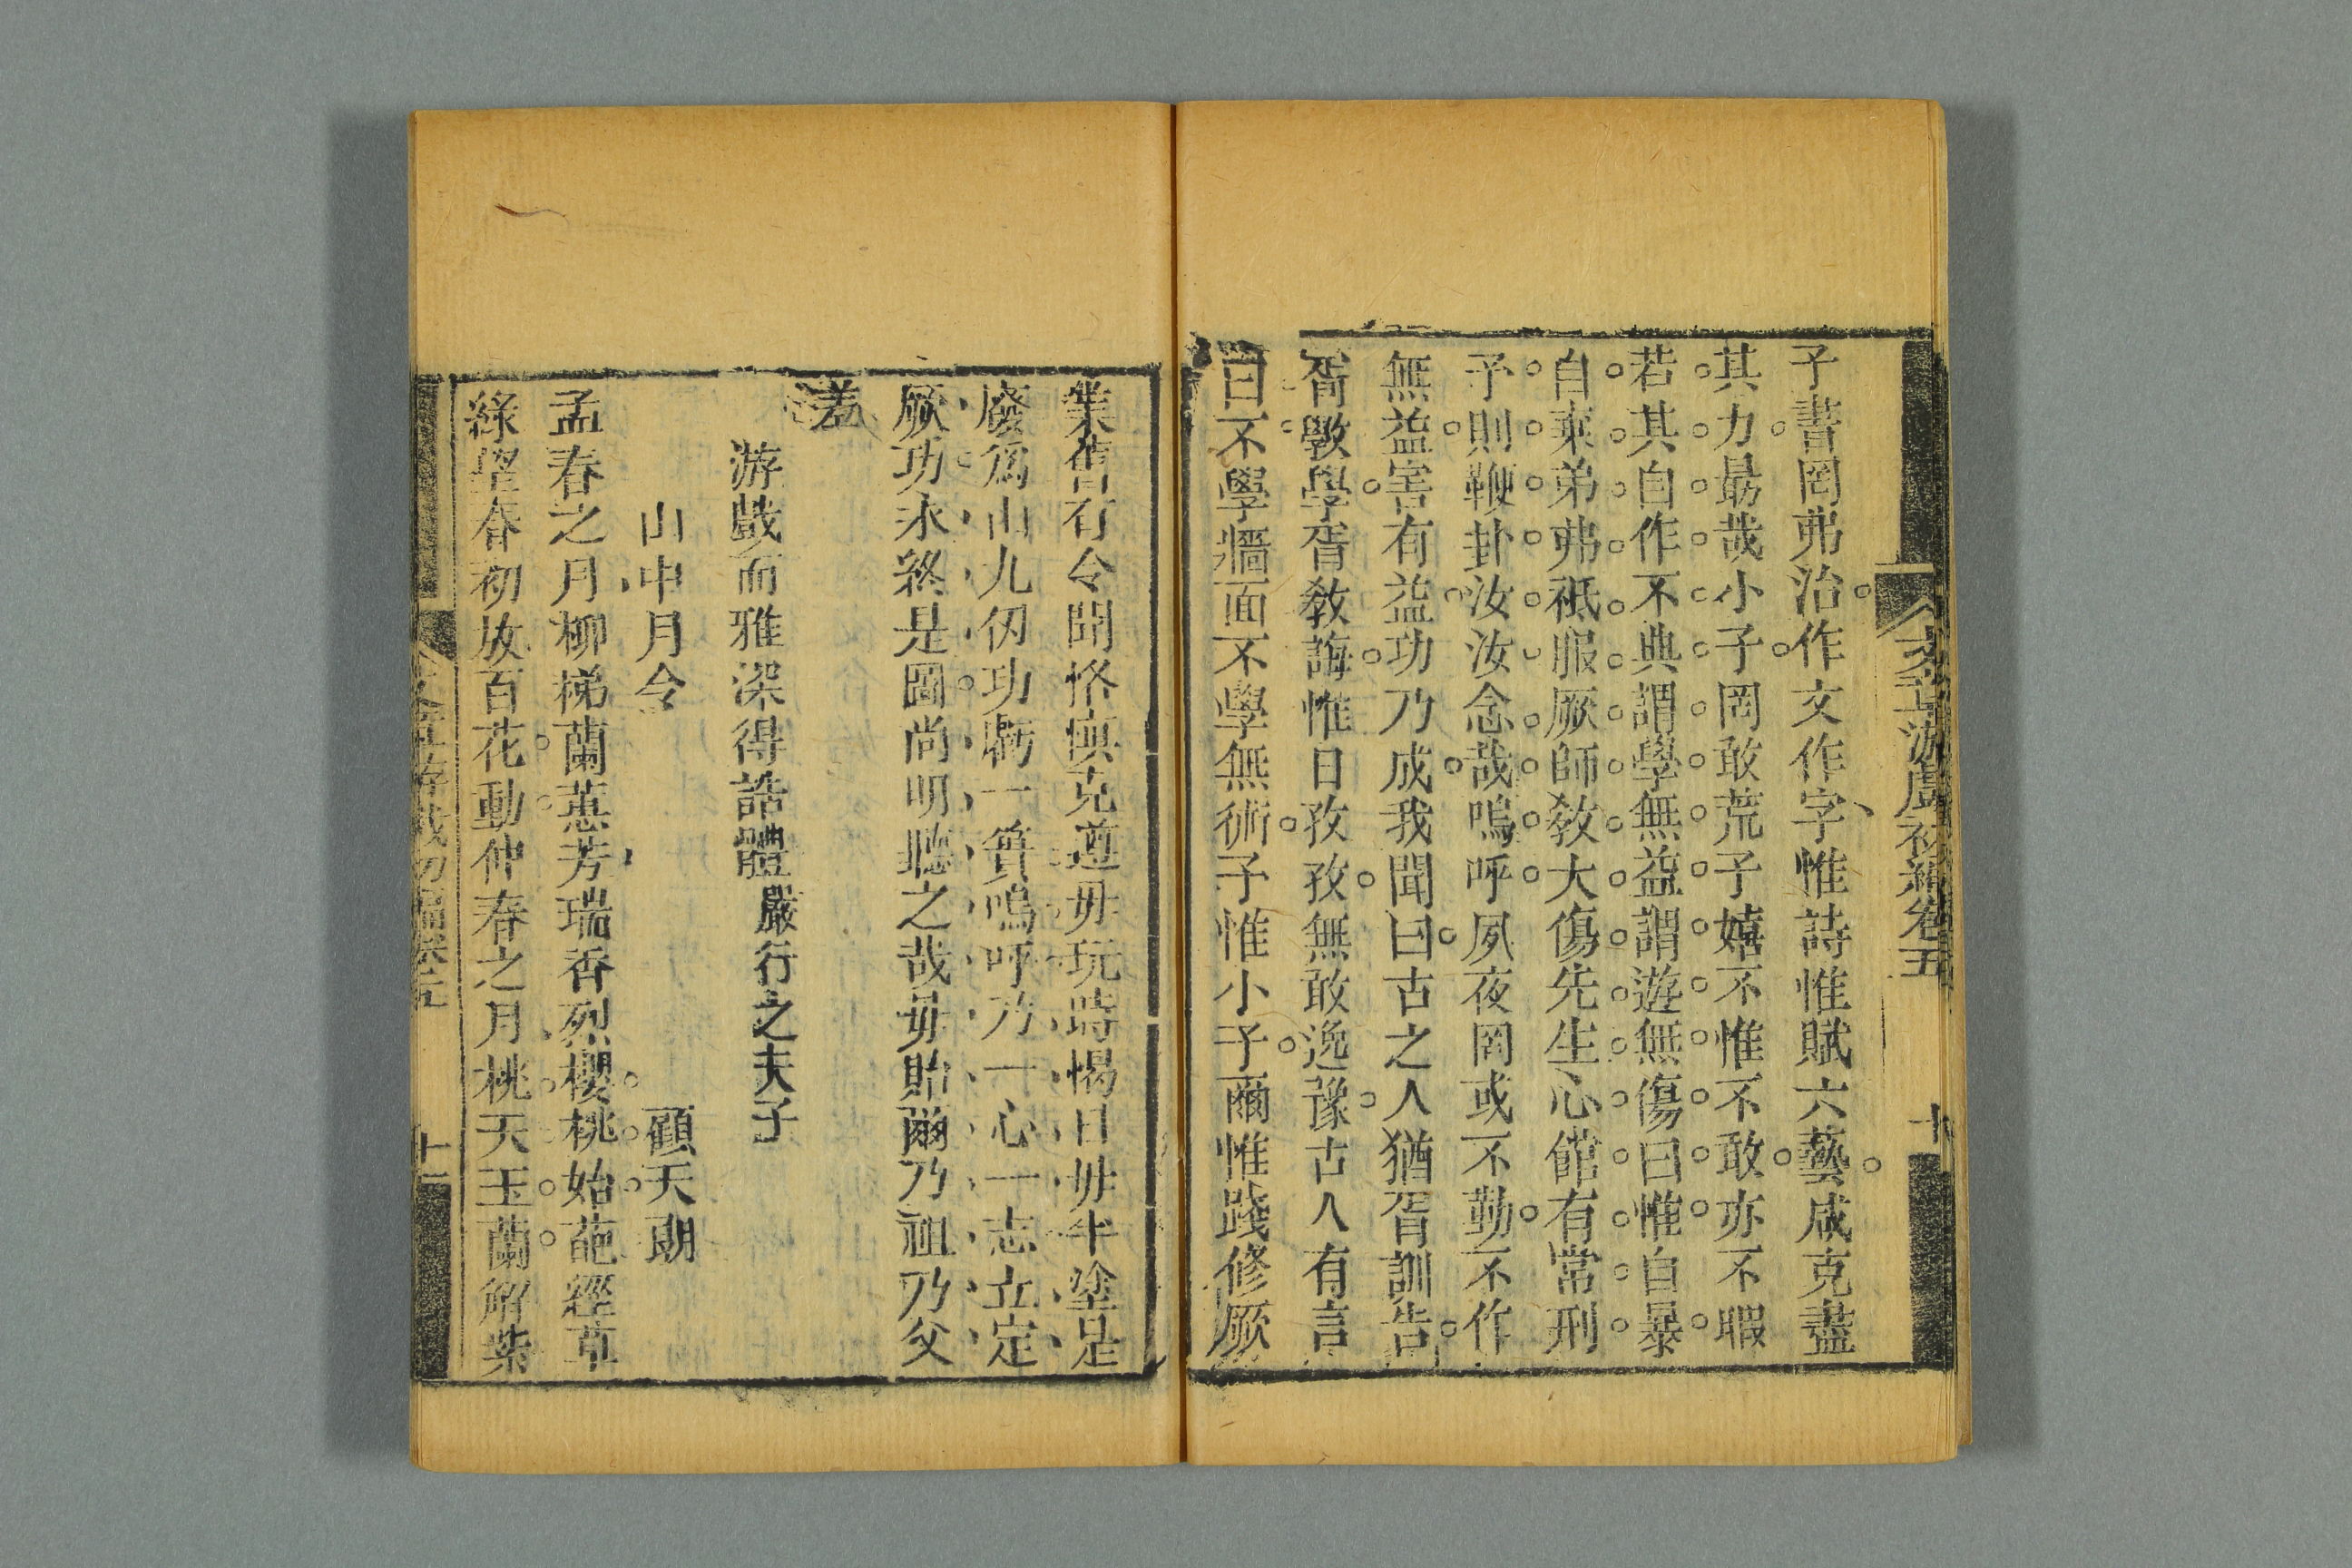 文章游戲初編卷五
十
子書罔弗治作文作字惟詩惟賦六藝咸克盡
其力最哉小子罔敢荒子嬉不惟不敢亦不暇
若其自作不典謂學無益謂遊無傷曰惟自暴
自棄弟弗祗服厥師教大傷先生心館有常刑
予則鞭卦汝汝念哉嗚呼夙夜罔或不勤不作
無益害有益功乃成我聞曰古之人猶胥訓告
胥斆學胥教誨惟日孜孜無敢逸豫古人有言
曰不學牆面不學無術子惟小子爾惟踐修厥
業舊有令聞恪慎克遵毋玩時愒日毋半塗足
廢爲山九仞功虧一簣嗚呼乃一心一志立定
厥功永終是圖尚明聽之哉毋貽爾乃祖乃父
羞
游戲而雅深得誥體嚴行之夫子
山中月令
顧天朗
孟春之月柳梯蘭蕙芳瑞香烈櫻桃始葩徑草
綠望春初放百花動仲春之月桃夭玉蘭解紫
文章游戲初編卷五
十一